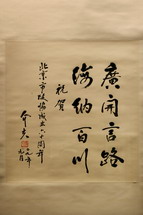 廣開言路
海納百川
祝賀
北京市政協成立六十周年